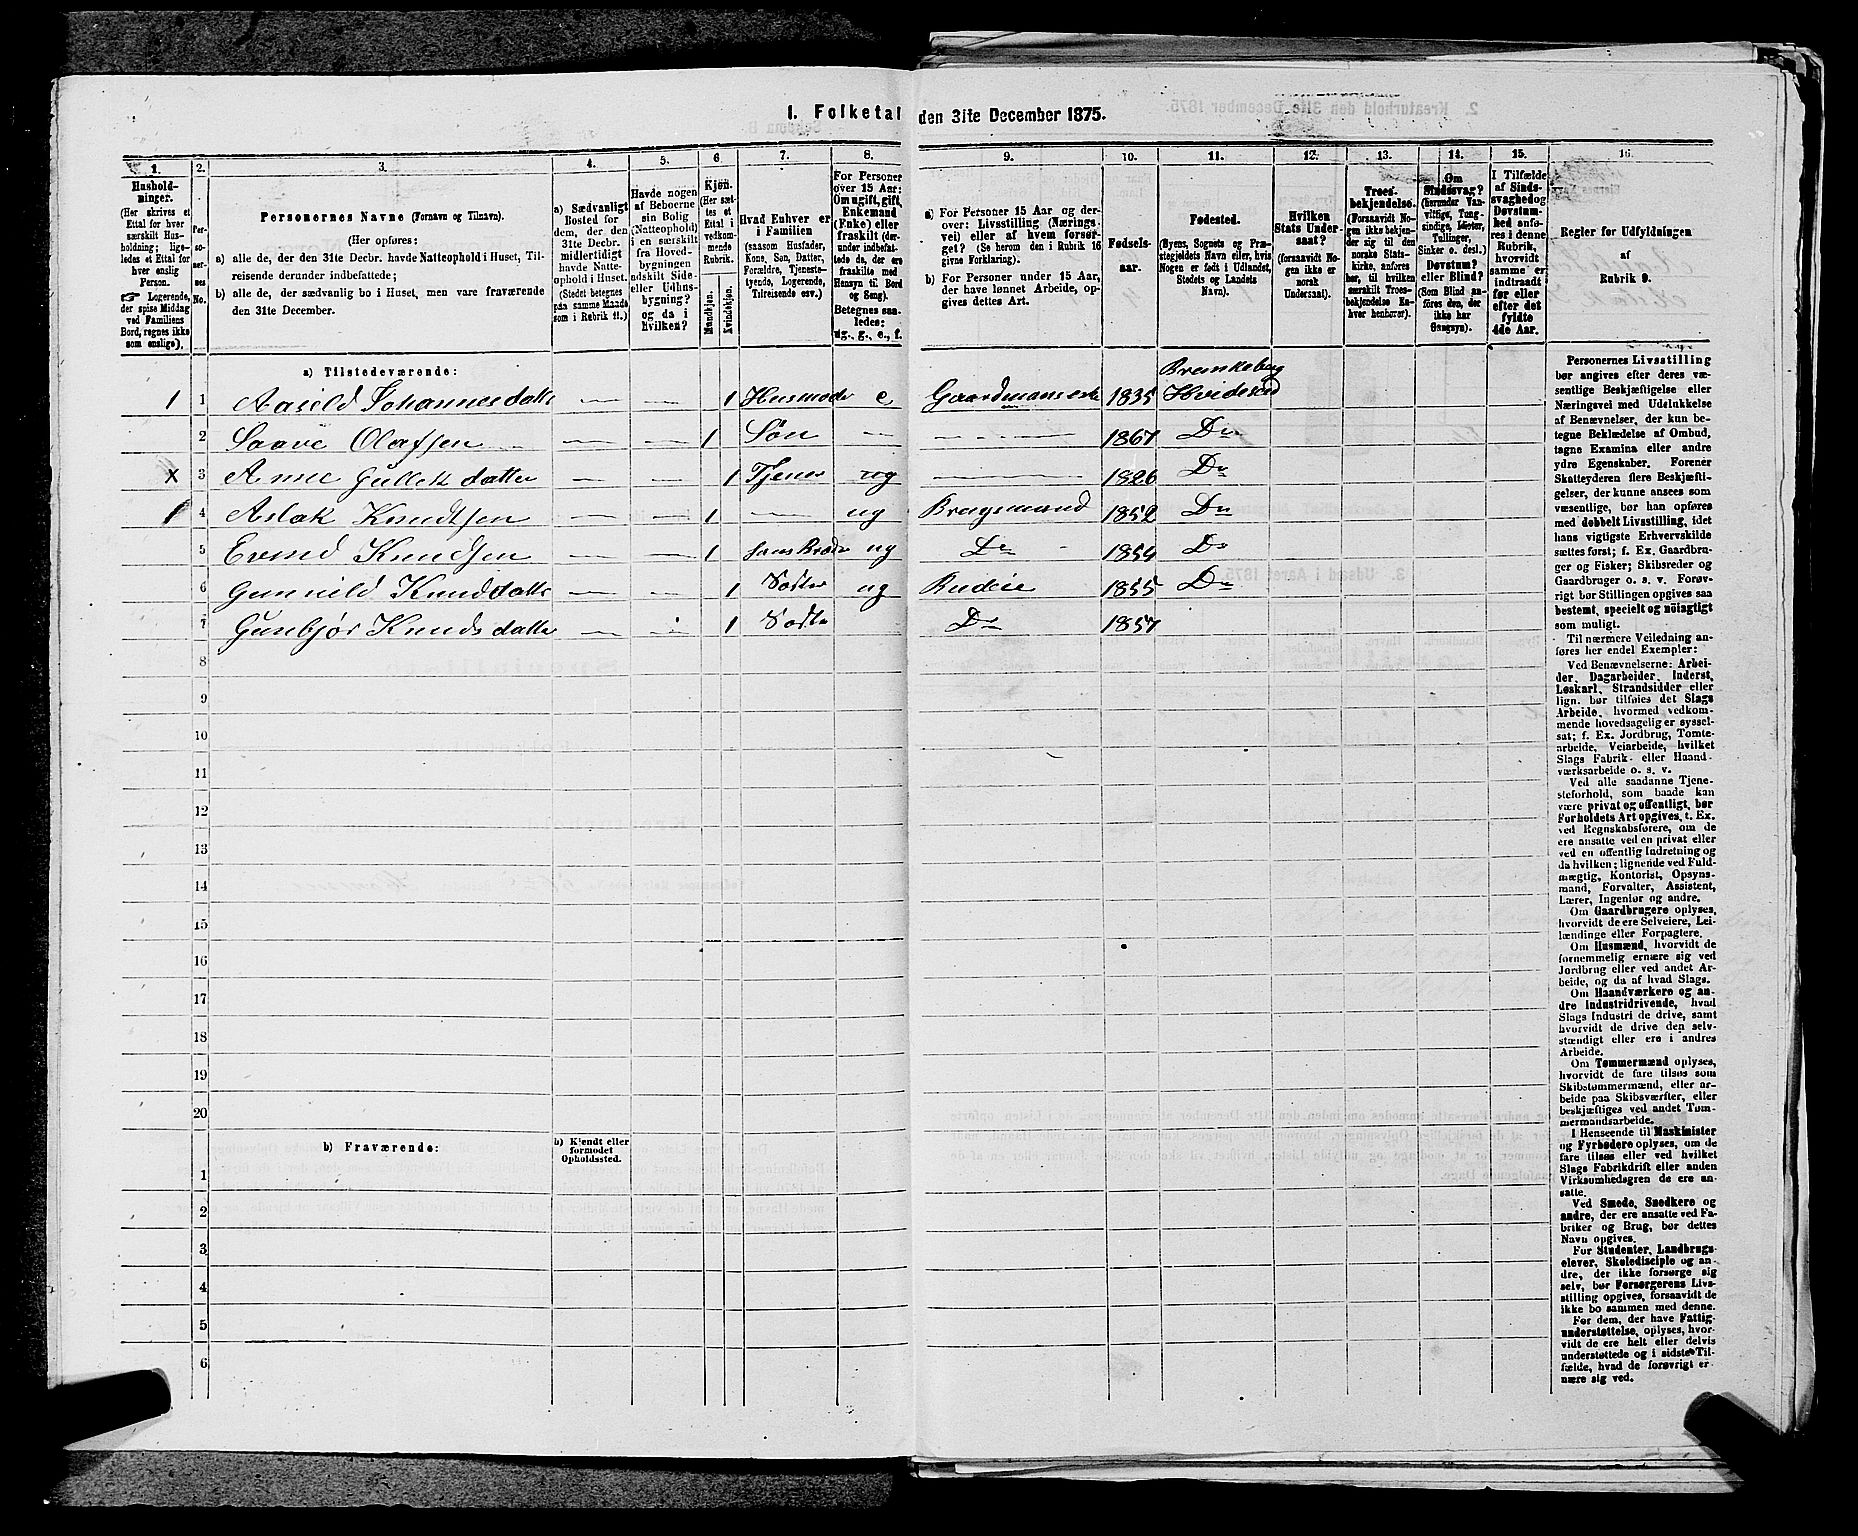 I. Folketal den 31te December 1875.
1. 2. 3. 4. 5. 6. 7. 8. 9. 10. 11. 12. 13. 14. 15. 16.
Hushold-
ninger.
(Her skrives et
Ettal for hver
særskilt Hus-
holdning; lige-
ledes et Ettal for
hver enslig
Person.
☞ Logerende,
der spise Middag
ved Familiens
Bord, regnes ikke
som enslige).
Per-
soner-
nes
No.
Personernes Navne (Fornavn og Tilnavn).
(Her opføres:
a) alle de, der den 31te Decbr. havde Natteophold i Huset, Til-
reisende derunder indbefattede;
b) alle de, der sædvanlig bo i Huset, men vare fraværende
den 31te December.
a) Sædvanligt
Bosted for
dem, der den
31te Decbr.
midlertidigt
havde Natte-
ophold i Huset.
(Stedet betegnes
paa samme Maade
som i Rubrik 11.)
Havde nogen
af Beboerne
sin Bolig
(Natteophold)
i en særskilt
fra Hoved-
bygningen
adskilt Side-
eller Udhus-
bygning?
og da i
hvilken?
Kjøn.
(Her sæt-
tes et
Ettal i
vedkom-
mende
Rubrik.
Mandkjøn.
Kvindekjøn.
Hvad Enhver er
i Familien
(saasom Husfader,
Kone, Søn, Datter,
Forældre, Tjeneste-
tyende, Logerende,
Tilreisende osv.)
For Personer
over 15 Aar:
Om ugift, gift,
Enkemand
(Enke) eller
fraskilt (der-
under indbefat-
tede de, der ere
fraskilte med
Hensyn til Bord
og Seng).
Betegnes saa-
ledes:
ug., g., e., f.
a) For Personer 15 Aar og der-
over: Livsstilling (Nærings-
vei) eller af hvem forsør-
get? (Se herom den i Rubrik 16
givne Forklaring).
b) For Personer under 15 Aar,
der have lønnet Arbeide, op-
gives dettes Art.
Fødsels-
aar.
Fødested.
(Byens, Sognets og Præ-
stegjeldets Navn eller, hvis
Nogen er født i Udlandet,
Stedets og Landets
Navn).
Hvilken
Stats Under-
saat?
(forsaavidt No-
gen ikke er
norsk
Undersaat).
Troes-
bekjendelse.
(Forsaavidt No-
gen ikke bekjen-
der sig til den
norske Stats-
kirke, anføres
her, til hvilken
særskilt Troes-
bekjendelse En-
hver henhører).
Om
Sindssvag?
(herunder Van-
vittige, Tung-
sindige, Idioter,
Tullinger,
Sinker o. desl.)
Døvstum?
eller Blind?
(Som Blind an-
føres den, der
ikke har
Gangsyn).
I Tilfælde
af Sinds-
svaghed og
Døvstum-
hed anfø-
res i denne
Rubrik,
hvorvidt
samme er
indtraadt
før eller
efter det
fyldte
4de Aar.
Regler for Udfyldningen
af
Rubrik 9.
a) Tilstedeværende:
Brunkeberg
1 1 Aasild Johannesdatte 1 Husmode e Gaardmansenke 1835 Hvideseid
2 Saave Olafsen — — 1 Søn — — 1867 Do
x 3 Anne Gullek datter — — 1 Tjener ug — 1826 Do
1 4 Aslak Knudtsen — — 1 — ug Brugsmand 1852 Do
5 Evind Knudsen — — 1 hans Broder ug Do - 1854 Do
6 Gunnild Knuddatte — — 1 Søster ug Budeie 1855 Do
7 Gunbjør Knudsdatte — 1 Søste Do 1857
8
9
10
11
12
13
14
15
16
17
18
19
20
b) Fraværende:
b) Kjendt eller
formodet
Opholdssted.
1
2
3
4
5
6
Personernes Livsstilling
bør angives efter deres væ-
sentlige Beskjæftigelse eller
Næringsvei med Udelukkelse
af Benævnelser, der kun be-
tegne Beklædelse af Ombud,
tagne Examina eller andre
ydre Egenskaber. Forener
Skatteyderen flere Beskjæfti-
gelser, der kunne ansees som
væsentlige, bør han opføres
med dobbelt Livsstilling, idet
hans vigtigste Erhvervskilde
sættes først; f. Ex. Gaardbru-
ger og Fisker; Skibsreder og
Gaardbruger o. s. v. Forøv-
rigt bør Stillingen opgives saa
bestemt, specielt og nöiagtigt
som muligt.
Til nærmere Veiledning an-
føres her endel Exempler:
Ved Benævnelserne: Arbei-
der, Dagarbeider, Inderst,
Løskarl, Strandsidder eller
lign. bør tilføies det Slags
Arbeide, hvormed vedkom-
mende hovedsagelig er syssel-
sat; f. Ex. Jordbrug, Tomte-
arbeide, Veiarbeide, hvilket
Slags Fabrik- eller Haand-
værksarbeide o. s. v.
Ved alle saadanne Tjene-
steforhold, som baade kan
være privat og offentligt, bør
Forholdets Art opgives, t. Ex.
ved Regnskabsførere, om de
ere ansatte ved en privat eller
ved en offentlig Indretning og
da hvilken; lignende ved Fuld-
mægtig, Kontorist, Opsyns-
mand, Forvalter, Assistent,
Lærer, Ingeniør og andre.
Om Gaardbrugere oplyses,
hvorvidt de ere Selveiere, Lei-
lændinge eller Forpagtere.
Om Husmænd, hvorvidt de
fornemmelig ernære sig ved
Jordbrug eller ved andet Ar-
beide, og da af hvad Slags.
Om Haandværkere og an-
dre Industridrivende, hvad
Slags Industri de drive, samt
hvorvidt de drive den selv-
stændigt eller ere i andres
Arbeide.
Om Tømmermænd oplyses,
hvorvidt de fare tilsøs som
Skibstømmermænd, eller ar-
beide paa Skibsværfter, eller
beskjæftiges ved andet Tøm-
mermandsarbeide.
I Henseende til Maskinister
og Fyrbødere oplyses, om de
fare tilsøs eller ved hvilket
Slags Fabrikdrift eller anden
Virksomhedsgren de ere an-
satte.
Ved Smede, Snedkere og
andre, der ere ansatte ved Fa-
briker og Brug, bør dettes
Navn opgives.
For Studenter, Landbrugs-
elever, Skoledisciple og an-
dre, der ikke forsørge sig
selv, bør Forsørgerens Livs-
stilling opgives, forsaavidt de
ikke bo sammen med denne.
For dem, der have Fattig-
understøttelse, oplyses, hvor-
vidt de ere helt eller delvis
understøttede og i sidste Til-
fælde, hvad de forøvrigt er-
nære sig ved.